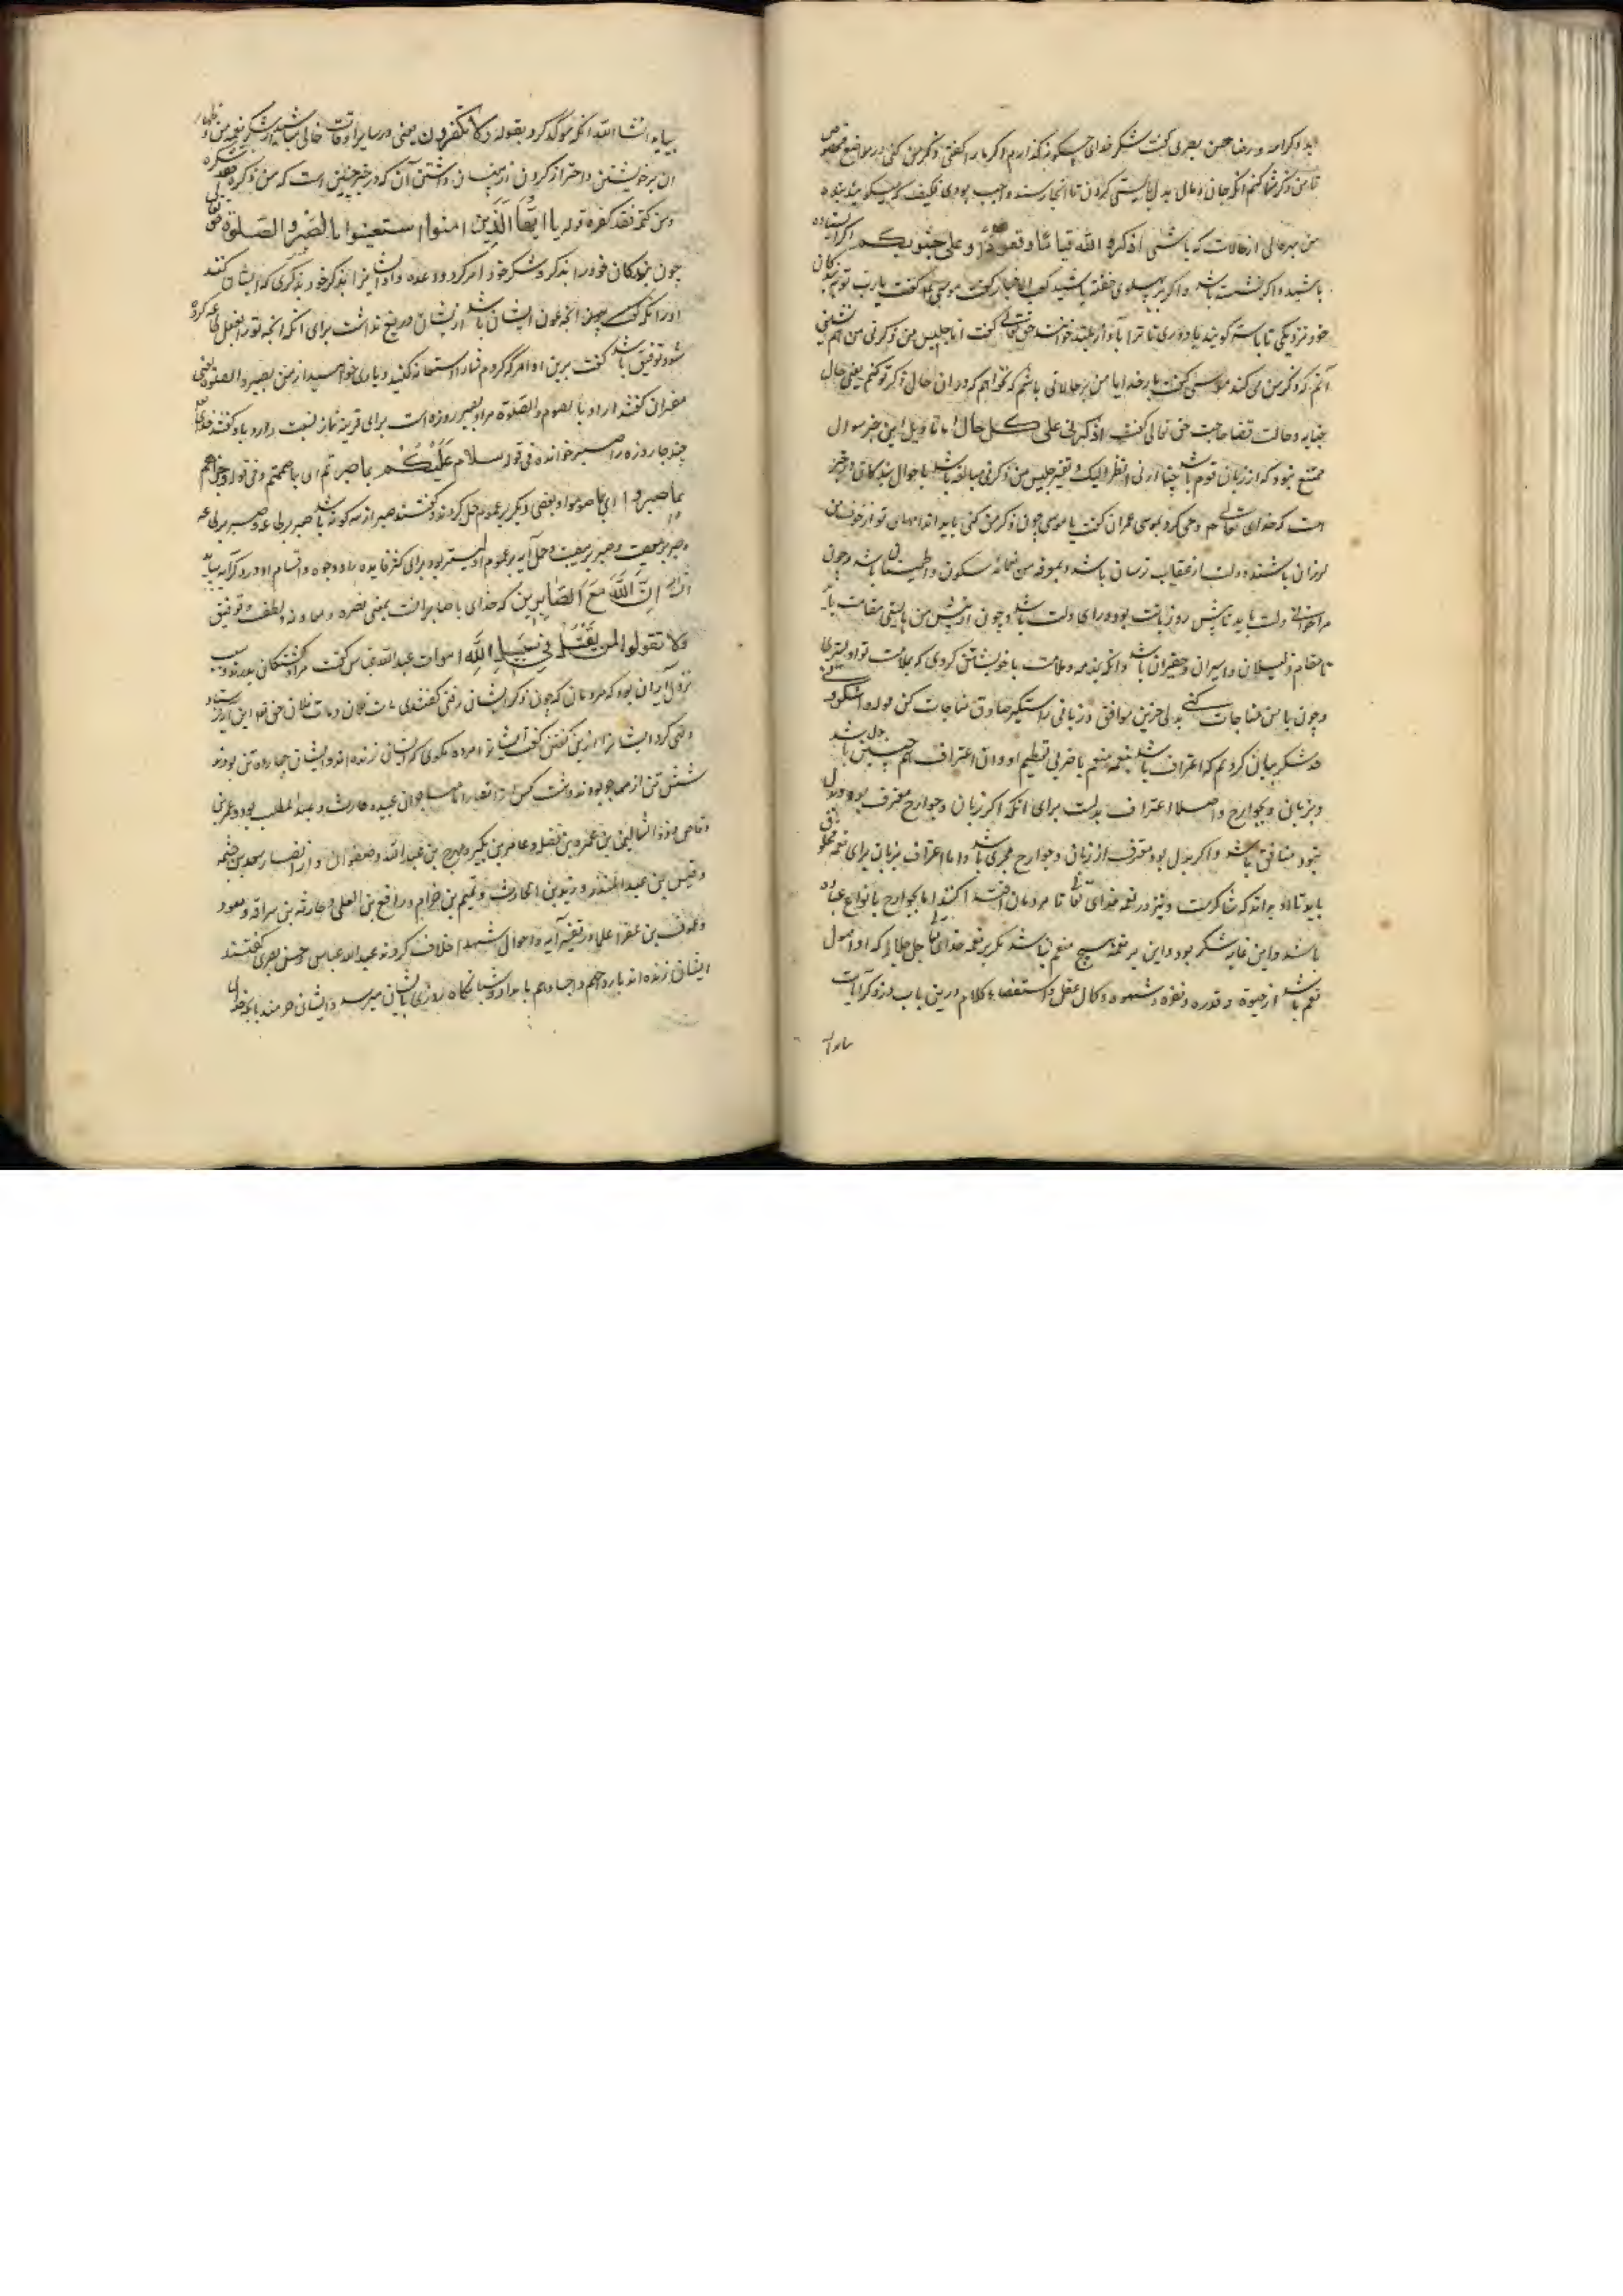 حسن بصری گفت شکر خدای چگونه گذارم اگر مرا گفتی ذکر من کنی در مواضع مخصوص
تا من ذکر شما کنم آنکه جان و مال بدل بایستی کردن تا آنجا رسند و عجب بودی فکیف که میگوید بنده
من بهر حالی از حالات که باشی اذکروا الله قیاما و قعودا و علی جنوبکم اگر ایستاده
باشید و اگر نشسته باشد و اگر بر پهلوی خفته باشید کعب الاخبار گفت موسی گفت یا رب تو به بندگان
خود نزدیکی تا با تو گویند یا دوری تا ترا بآواز بلند خوانند حق تعالی گفت انا جلیس من ذکرنی من هم نشین
آنم که ذکر من می کند موسی گفت بار خدایا من بر حالاتی باشم که نخواهم که در ان حال ذکر تو کنم یعنی حال
جنابه و حالت قضا حاجت حق تعالی گفت اذکرنی علی کل حال اما تاویل این خبر سوال
ممتنع نبود که از زبان قوم باشد چنانکه ارنی انظر الیک و تفسیر جلیس من ذکرنی مبالغه باشد باحوال بندگان و در خبر
است که خدای تعالی وحی کرد بموسی عمران گفت یا موسی چون ذکر من کنی باید اندامهای تو از خوف من
لرزان باشند و دلت از عقاب ترسان باشد و
مرا خوانی دلت باید تا پیش رو زبانت بود و رای دلت باشد و چون در پیش من بایستی مقامت باید
تا مقام ذلیلان و اسیران و حقیران باشد و آنکه بذمه و ملامت با خویشتن گردی که بملامت تو اولیتری
و چون با من مناجات کنی بدلی حزین موافق و زبانی راستگیر صادق مناجات کن
حد شکر بیان کردیم که اعتراف باشد بنعمه منعم با ضربی تعظیم او و ان اعتراف هم چنین باشد
و بزبان و بجوارح و اصلا اعتراف بدلست برای آنکه اگر زبان و جوارح معترف بود و دل
نبود منافق باشد و اگر بدل بود معترف از زبان و جوارح مجزی باشد و اما اعتراف بزبان برای نعمه مخلوق
باید تا او بداند که شاکرست و نیز در نعمه خدای تعالی تا مردمان اقتدا کنند اما بجوارح بانواع عباده
باشد و این غایه شکر بود و این بر نعمه هیچ منعم نباشد مگر بر نعمه خدای تعالی جل جلاله که او اصول
نعم باشد از حیوة و قدره و نفره و شهوه و کمال عقل و استقصاء کلام درین باب در ذکر آیات
بیاید ان شا الله آنکه موکد کرد بقوله و لا تکفرون یعنی در سایر اوقات خالی مباشید از شکر نعمه من و اظهار
ان بر خویشتن و احتراز کردن از پنهان داشتن آن که در خبر چنین است که من ذکره فقد شکره
و من کتمه فقد کفره قوله یا ایها الذین امنوا استعینوا بالصبر و الصلوة حق تعالی
چون بندگان خود را بذکر و شکر خود امر کرد و وعده داد ایشانرا بذکر خود بذکری که ایشان کنند
او را آنکه گفت پس آنچه عون ایشان باشد از ایشان دریغ نداشت برای آنکه آنچه
شود توفیق باشد گفت برین اوامر که کردم شما را استعانه کنید و یاری خواهید از من بصبر و الصلوة یعنی
مفسران گفتند اراد بالصوم و الصلوة مراد بصبر روزه است برای قرینه نماز نسبت دارد باو گفتند خدای تعالی
چند جا روزه را صبر خوانده فی قوله سلام علیکم بما صبرتم ای بما صمتم و فی قوله و جزاهم
بما صبروا ای بما صاموا و بعضی دیگر بر عموم حمل کردند و گفتند صبر از سه گونه باشد صبر بر طاعه
و صبر بر معصیت و صبر بر مصیبت و حمل آیه بر عموم اولیتر بود برای کثر فایده را و وجوه و اقسام او در دگر آیه بیاید
ان الله مع الصابرین که خدای با صابرانست بمعنی نصره و معاونه و لطف و توفیق
ولا تقولوا لمن یقتل فی سبیل الله اموات عبدالله عباس گفت مراد کشتگان بدرند و سبب
نزول آیه ان بود که مردمان که چون ذکر ایشان رفتی گفتندی مات فلان و مات فلان حق تعالی این آیه فرستاد
و نهی کرد ایشانرا ازین گفتن گفت ایشانرا مرده مگوی که ایشان زنده اند و ایشان چهارده تن بودند
شش تن از مهاجر بودند و هشت کس از انصار اما مهاجران عبیده حارث و عبد المطلب بود و عمر بن
وقاص و ذو الشمالین بن عمرو بن نفیله و عامر بن بکیر و مهجع بن عبدالله و صفوان و از انصار سعد بن خثیمه
و قیس بن عبد المنذر و زید بن الحارث و تمیم بن حزام و رافع بن المعلی و حارثه بن سراقه و معوذ
و عوف بن عفرا علما در تفسیر آیه و احوال شهدا خلاف کردند عبدالله عباس و حسن بصری گفتند
ایشان زنده اند بارواحهم و اجسادهم بامداد و شبانگاه روزی بایشان میرسد و ایشان خرمند